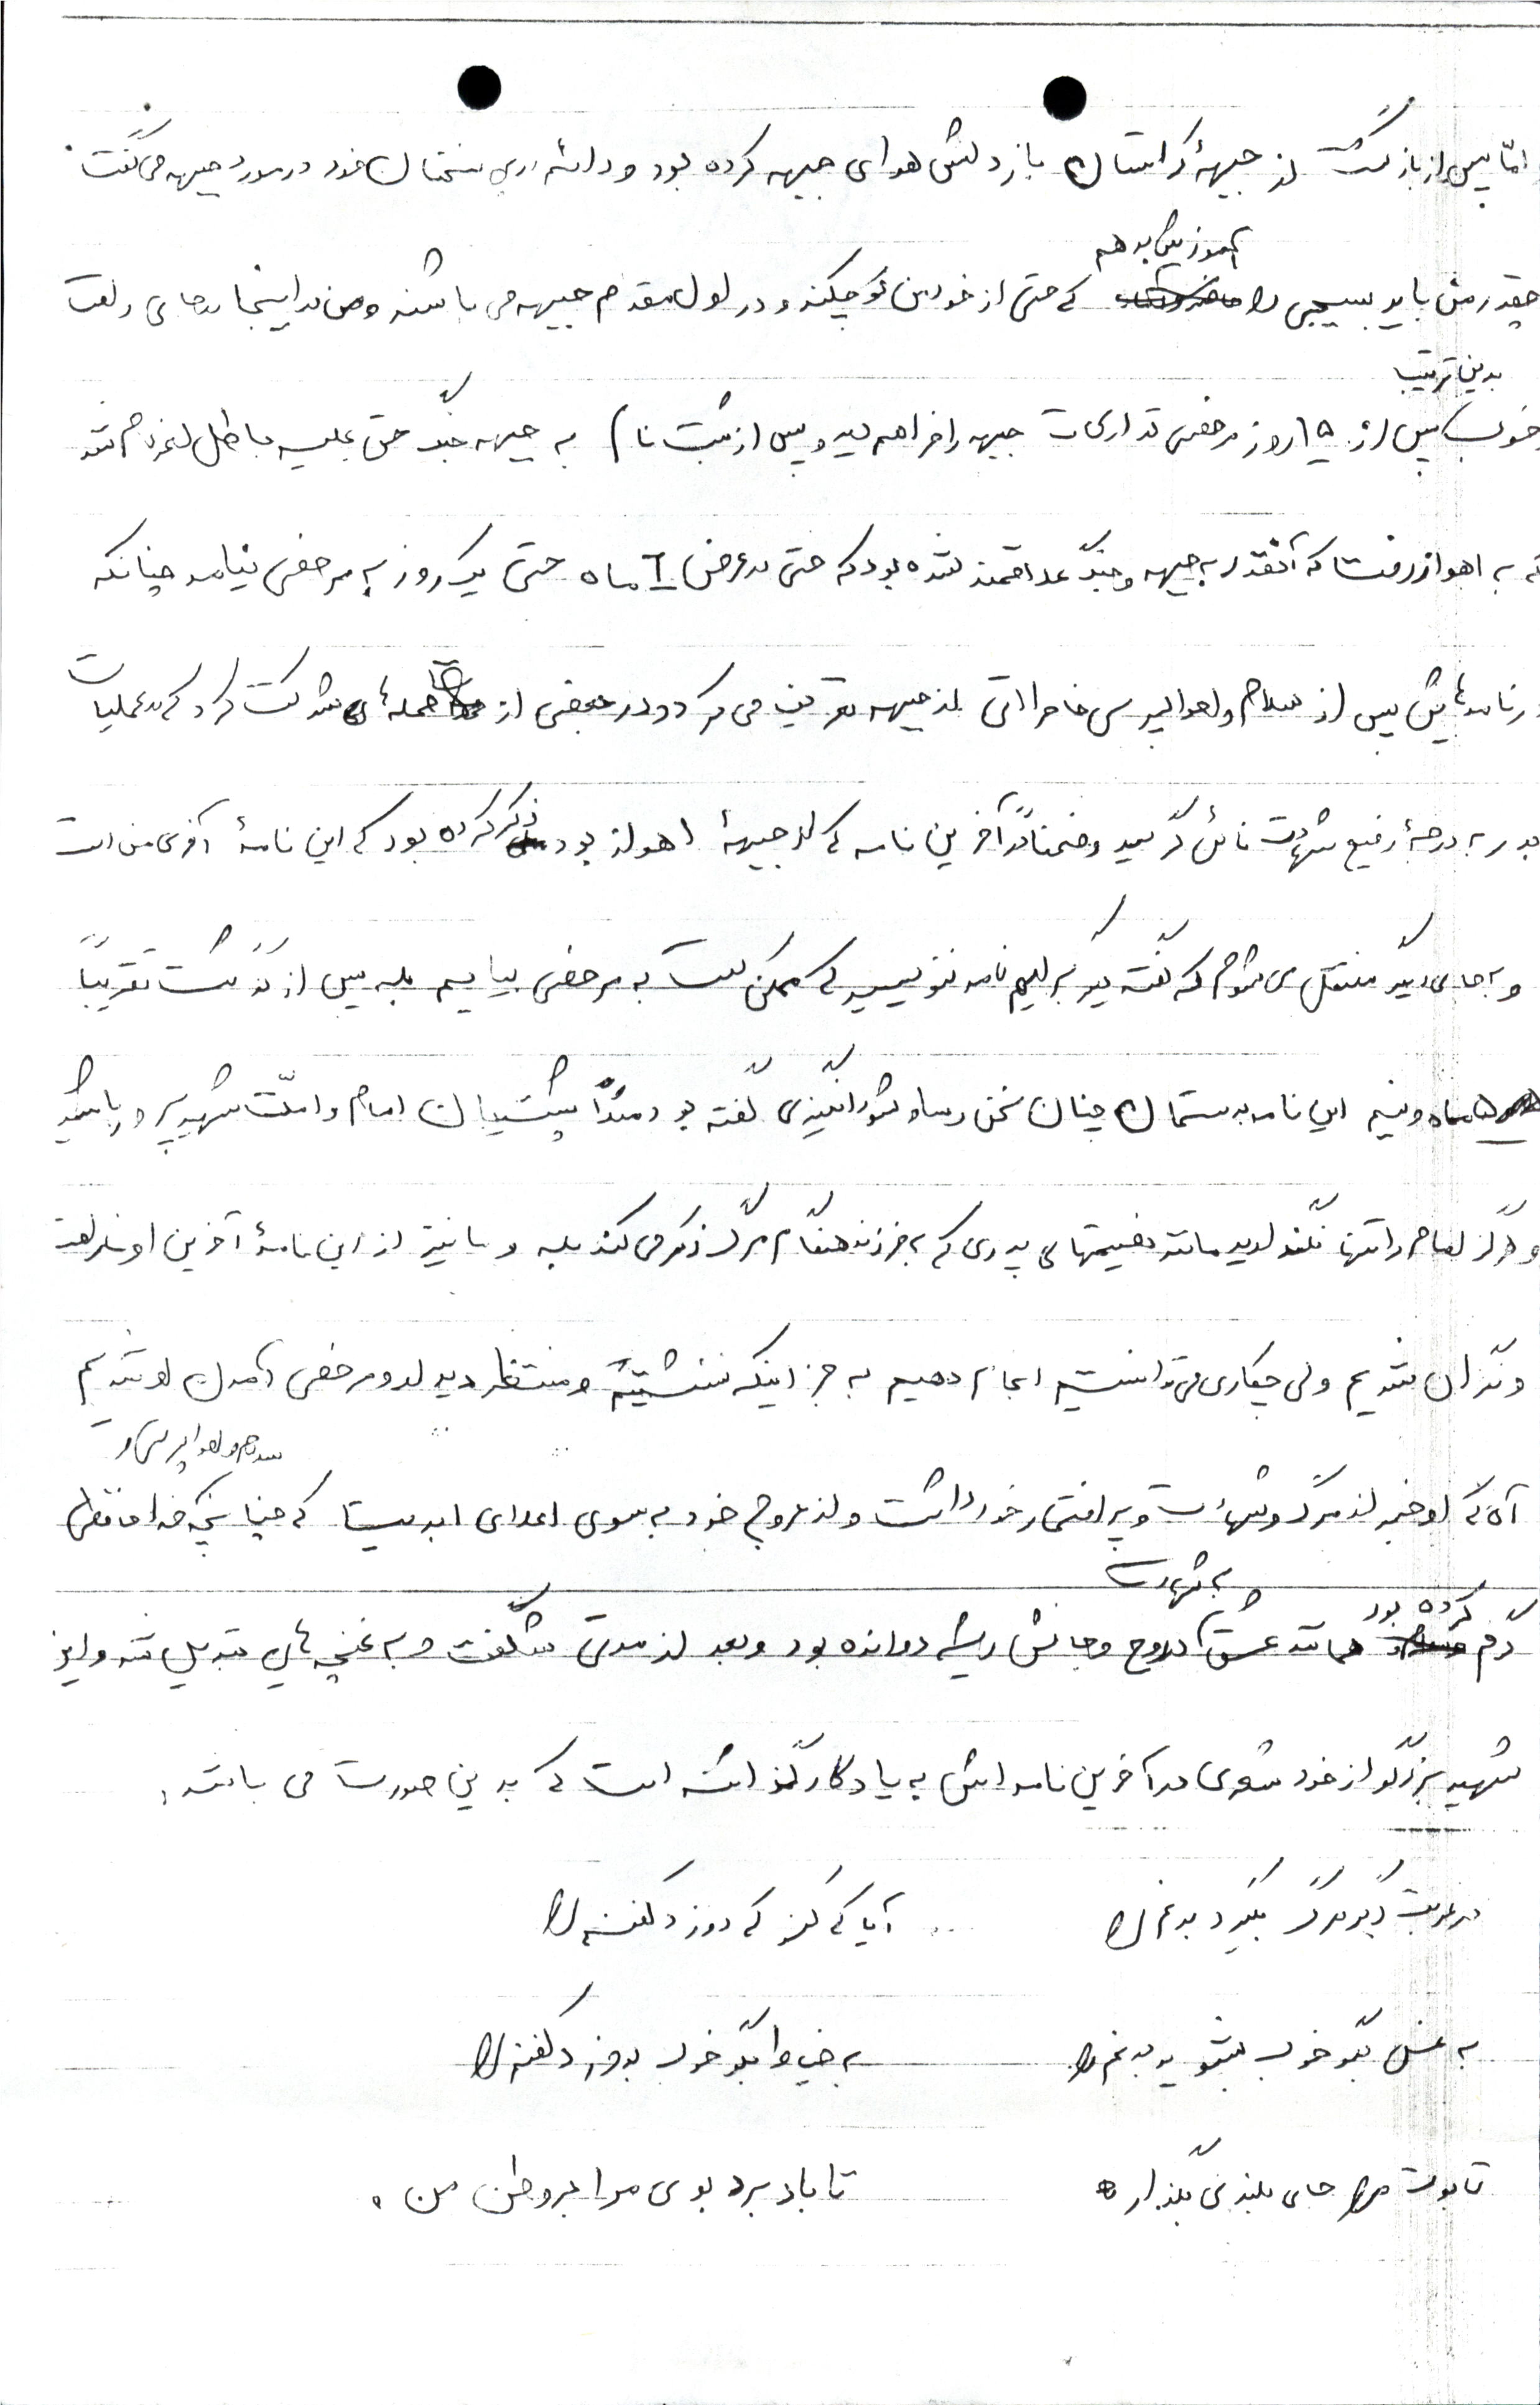 امّا پس از بازگشت از جبههٔ کردستان باز دلش هوای جبهه کرده بود و در سخنان خود در مورد جبهه می‌گفت
آموزش بدهم
چقدر من باید بسیجی را که حتی از خود من کوچکند و در اول مقدم جبهه می باشند و من در اینجا
بدین ترتیب
خوب پس از ۱۵ روز مرخصی تدارکات جبهه را فراهم دید و پس از ثبت نام به جبهه جنگ حق علیه باطل اعزام شد
که به اهواز رفت که آنقدر به جبهه و جنگ علاقمند شده بود که حتی در عرض ۶ ماه حتی یک روز به مرخصی نیامد چنانکه
در نامه‌هایش پس از سلام و احوالپرسی خاطراتی از جبهه تعریف می کرد و در بعضی از حمله‌های شرکت کرد که در عملیات
بدر به درجهٔ رفیع شهادت نائل گردید و ضمناً در آخرین نامه که از جبههٔ اهواز بود ذکر کرده بود که این نامهٔ آخری من است
و به جای دیگر منتقل می شوم که گفته دیگر برایم نامه ننویسید که ممکن است به مرخصی بیایم بله پس از گذشت تقریباً
ماه و نیم این نامه بدستمان چنان سخن رسا و شورانگیزی گفته بود مثلاً پشتیبان امام و امّت شهید پرور باشید
و هرگز امام را تنها نگذارید مانند نصیحتهای پدری که به فرزند هنگام مرگ ذکر می کند بله و ما نیز از این نامهٔ آخرین او
و نگران شدیم ولی چکاری می توانستیم انجام دهیم به جز اینکه ننشسته و منتظر دیدار و مرخصی آمدن او شدیم
سلام و احوالپرسی و
آن که او خبر از مرگ و شهادت و پر افتخار خود داشت و از عروج خود به سوی اعلای ابدیت که چنانچه خداحافظی
به شهادت
گرم کرده بود همانند عشق در روح و جانش ریشه دوانده بود و بعد از مدتی شگفت و به غنچه‌های تبدیل شد و این
شهید بزرگوار از خود شعری در آخرین نامه اش به یادگار گذاشته است که بدین صورت می باشد:
در غربت اگر مرگ بگیرد بدنم را آیا که کنو که دوزد کفنم را
به غسل بگو خوب بشوید بدنم را به خیاط بگو خوب بدوزد کفنم را
تابوت مرا جای بلندی بگذارد تا باد برد بوی مرا بر وطن من .